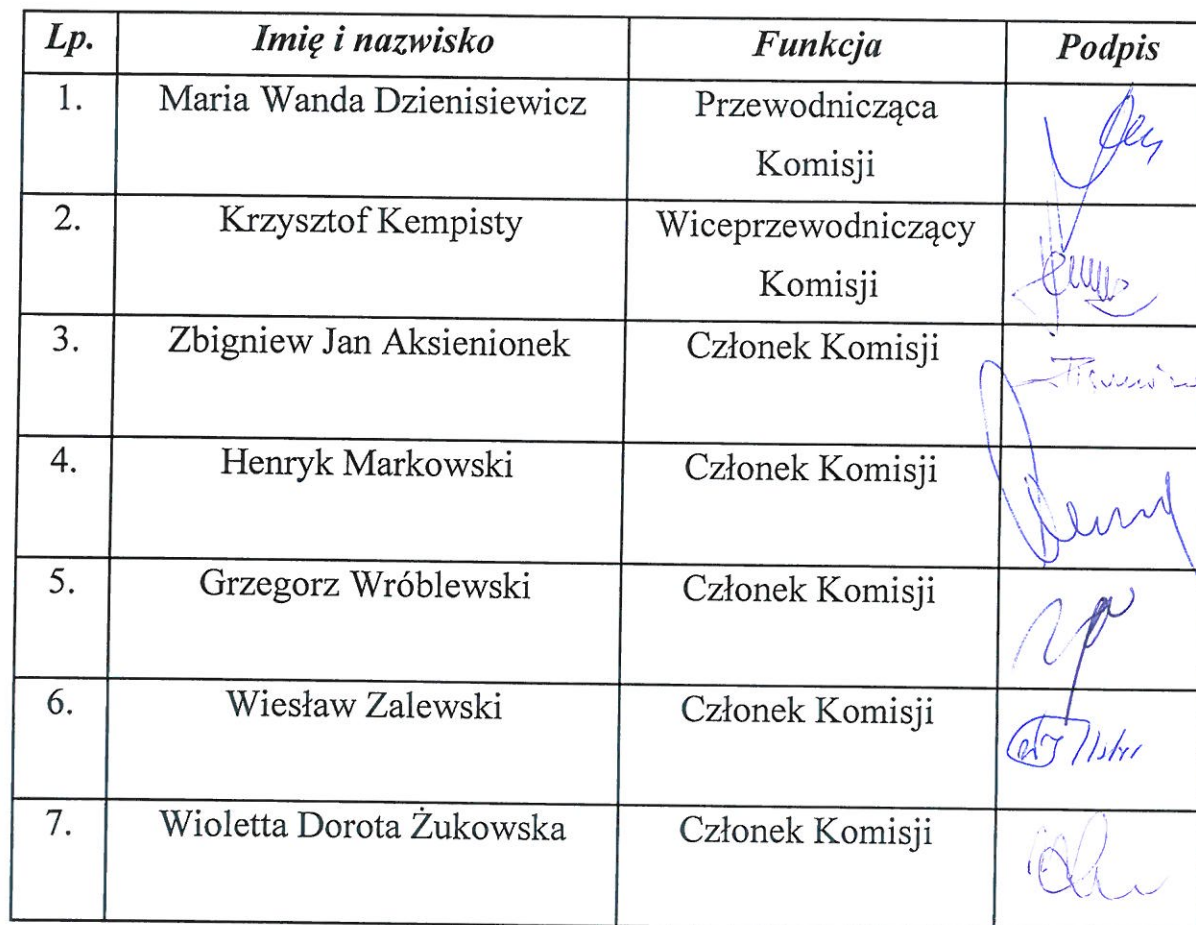 Lp. Imię i nazwisko Funkcja Podpis
1. Maria Wanda Dzienisiewicz Przewodnicząca
Komisji
2. Krzysztof Kempisty Wiceprzewodniczący
Komisji
3. Zbigniew Jan Aksienionek Członek Komisji
4. Henryk Markowski Członek Komisji
5. Grzegorz Wróblewski Członek Komisji
6. Wiesław Zalewski Członek Komisji
7. Wioletta Dorota Żukowska Członek Komisji